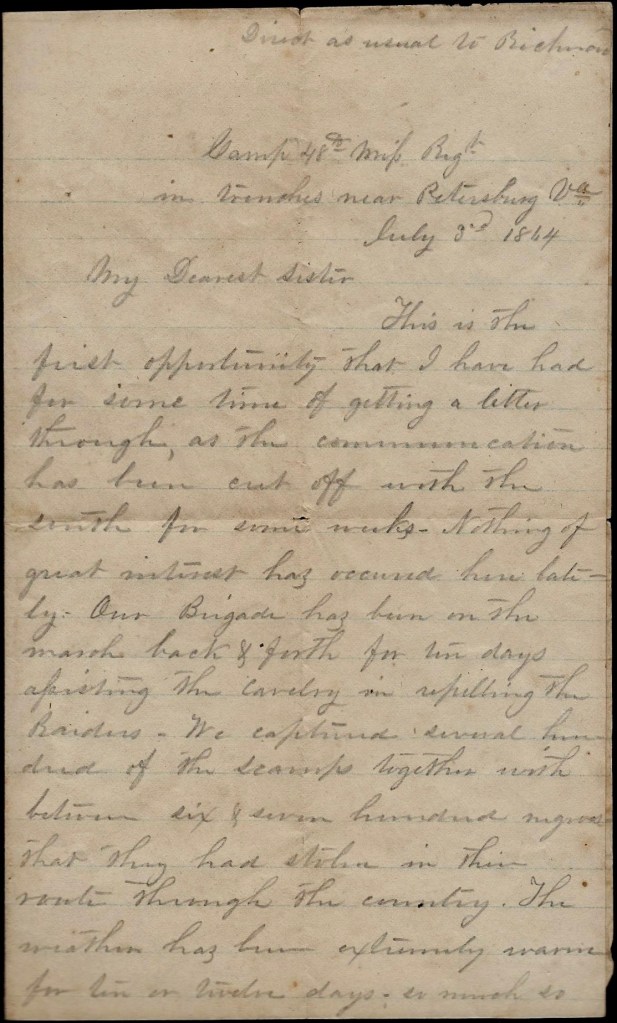 Direct as usual to Richmon
Camp 48th Miss Regt
in trenches near Petersburg Va
July 3rd 1864
My Dearest Sister
This is the
first opportunity that I have had
for some time of getting a letter
through, as the communication
has been cut off with the
south for some weeks - Nothing of
great interest has occured here late-
ly. Our Brigade has been on the
march back & forth for ten days
assisting the Cavelry in repelling the
Raiders - We captured several hun
dred of the scamps together with
between six & seven hundred negroes
that they had stolen in their
route through the country. The
weather has been extremely warm
for ten or twelve days - so much so